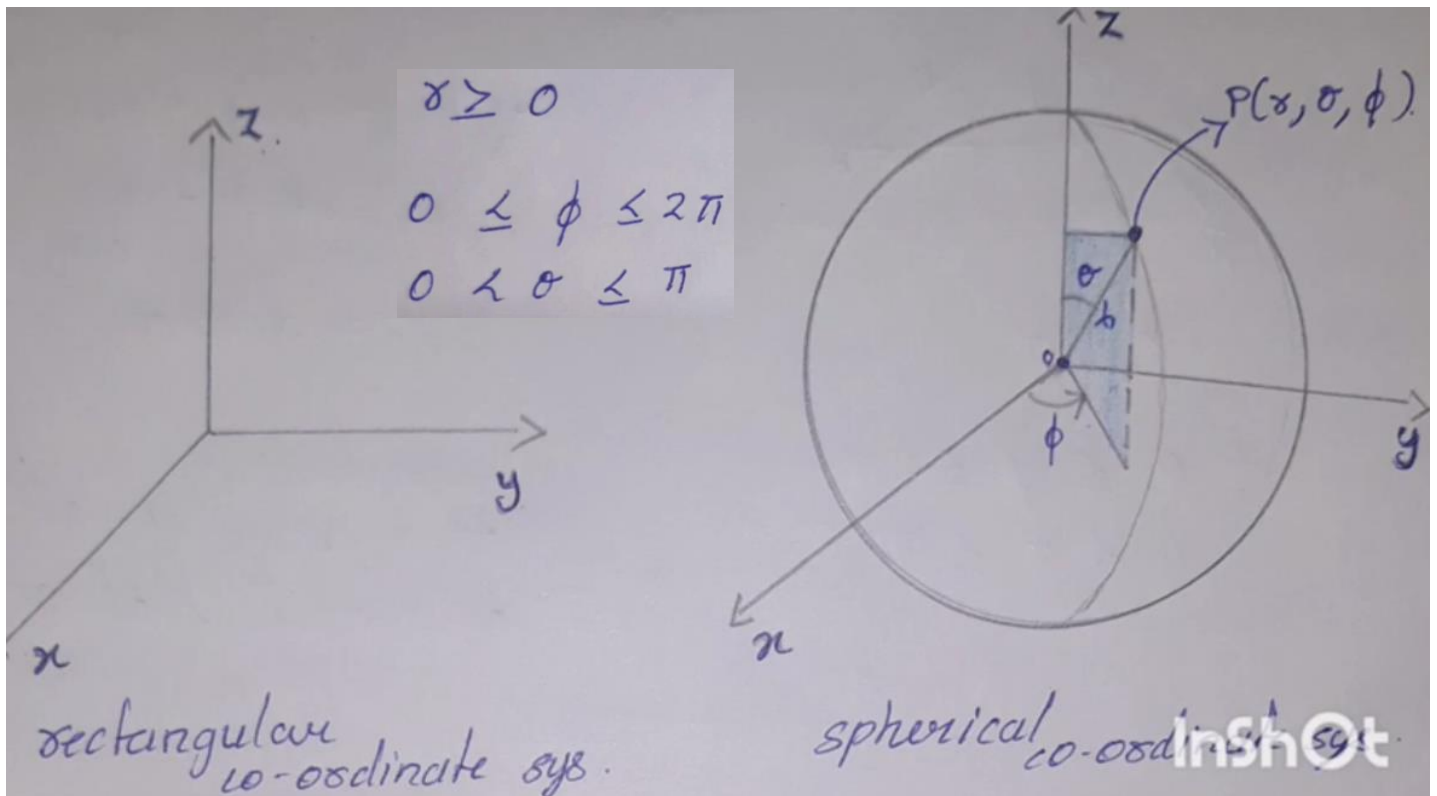 z
r ≥ 0
0 ≤ ϕ ≤ 2π
0 < θ ≤ π
y
x
rectangular
co-ordinate sys.
z
P(r, θ, ϕ)
θ
r
0
ϕ
y
x
spherical
co-ordinate sys.
InShOt